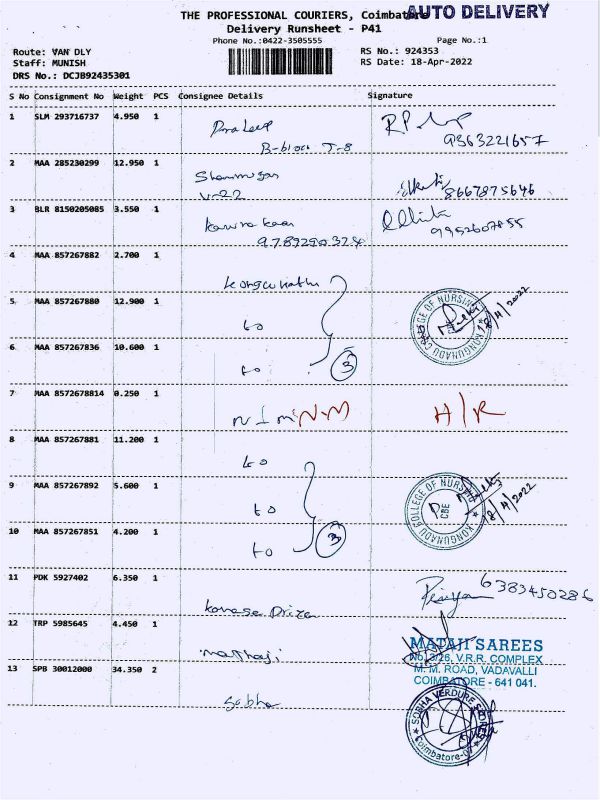 THE PROFESSIONAL COURIERS, Coimbatore
AUTO DELIVERY
Delivery Runsheet - P41
Phone No.:0422-3505555
Page No.:1
Route: VAN DLY
RS No.: 924353
Staff: MUNISH
RS Date: 18-Apr-2022
DRS No.: DCJB92435301
S No Consignment No Weight PCS Consignee Details Signature
1 SLM 293716737 4.950 1
B-block T-8
9363221657
2 MAA 285230299 12.950 1
V-22
8667875646
3 BLR 8150205085 3.550 1
9789290324
9952607855
4 MAA 857267882 2.700 1
5 MAA 857267880 12.900 1
to
COLLEGE OF NURSING
KONGUNADU
18/4/2022
6 MAA 857267836 10.600 1
to
3
7 MAA 8572678814 0.250 1
N I M N.M
H/R
8 MAA 857267881 11.200 1
to
9 MAA 857267892 5.600 1
to
KONGUNADU COLLEGE OF NURSING
CBE
18/4/2022
10 MAA 857267851 4.200 1
to
3
11 PDK 5927402 6.350 1
6383450286
12 TRP 5985645 4.450 1
MATAJI SAREES
No. 3/26, V.R.R. COMPLEX
M. M. ROAD, VADAVALLI
COIMBATORE - 641 041.
13 SPB 30012000 34.350 2
Sobha
SOBHA VERDURE
Coimbatore